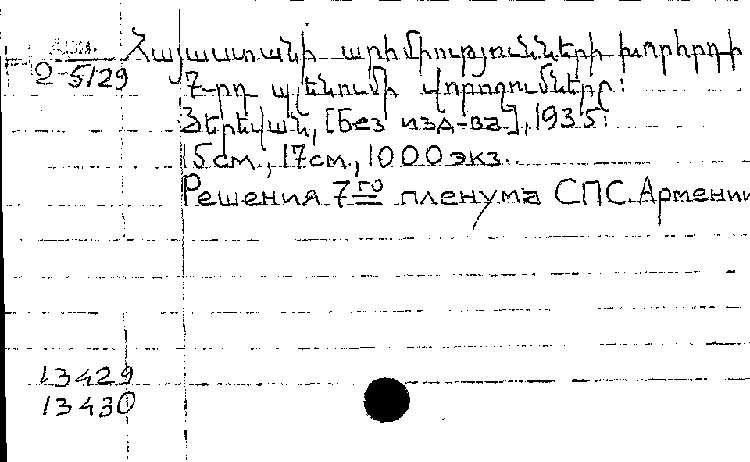 Арм.
2-5129
Հայաստանի արհմիությունների խորհրդի
7-րդ պլենումի վորոշումները:
Յերևան, [без изд-ва], 1935:
15 см., 17 см., 1000 экз.
Решения 7го пленума СПС Армении
13429
13430